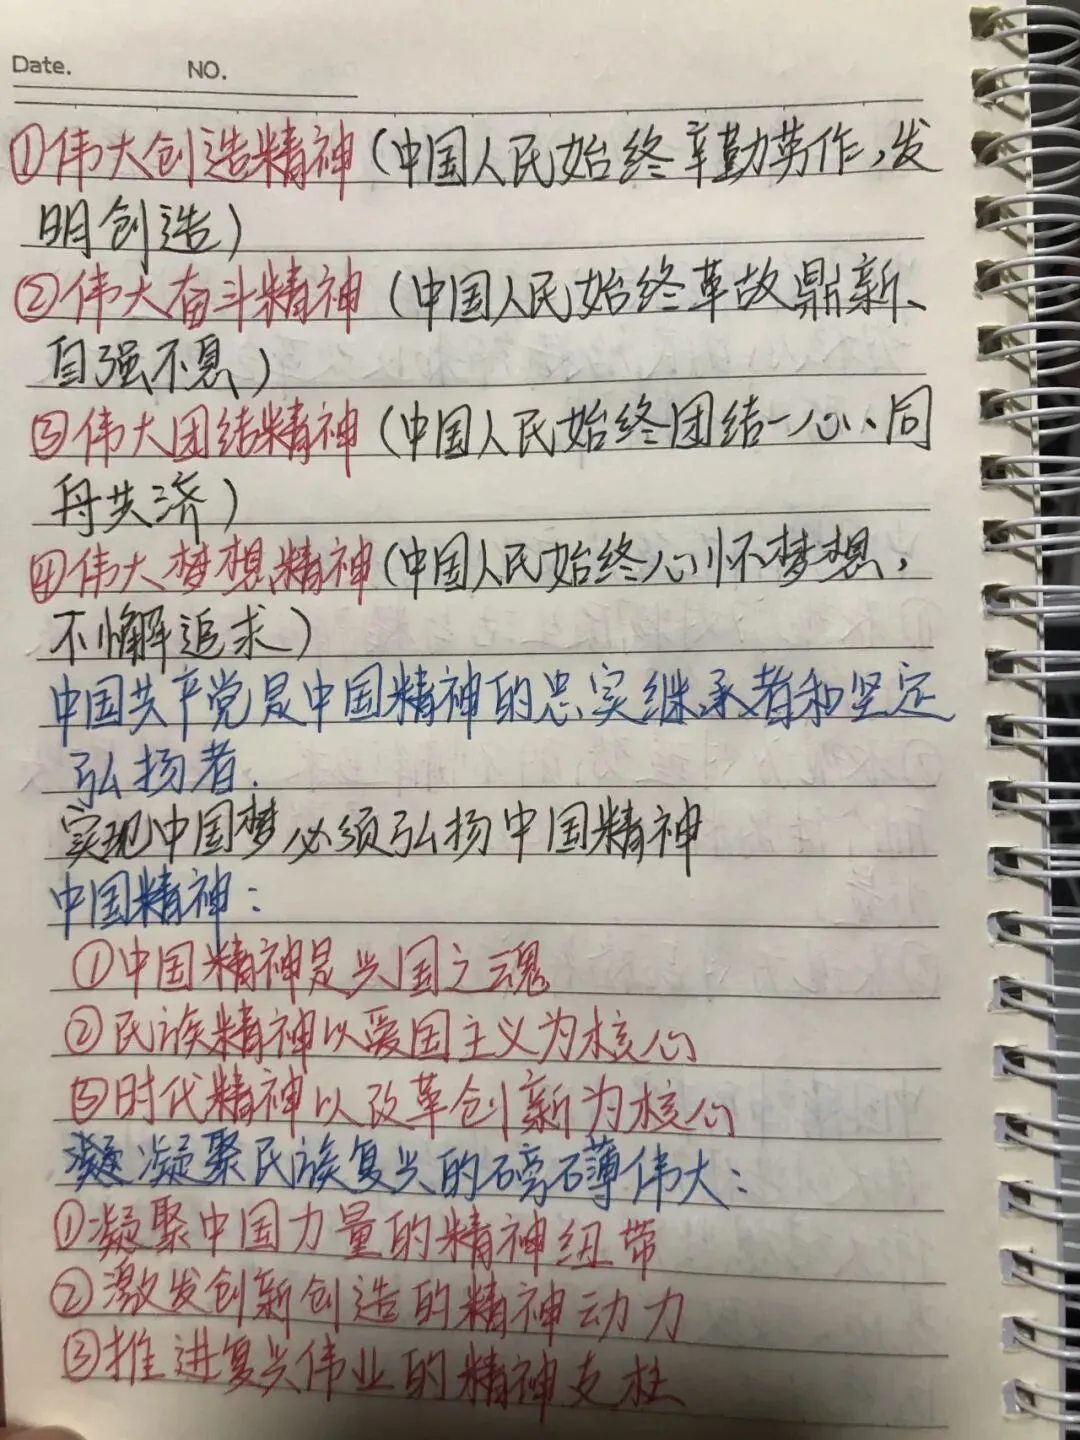 Date. NO.
①伟大创造精神(中国人民始终辛勤劳作,发
明创造)
②伟大奋斗精神(中国人民始终革故鼎新、
自强不息)
③伟大团结精神(中国人民始终团结一心、同
舟共济)
④伟大梦想精神(中国人民始终心怀梦想,
不懈追求)
中国共产党是中国精神的忠实继承者和坚定
弘扬者.
实现中国梦必须弘扬中国精神
中国精神:
①中国精神是兴国之魂
②民族精神以爱国主义为核心
③时代精神以改革创新为核心
凝聚民族复兴的磅礴伟大:
①凝聚中国力量的精神纽带
②激发创新创造的精神动力
③推进复兴伟业的精神支柱